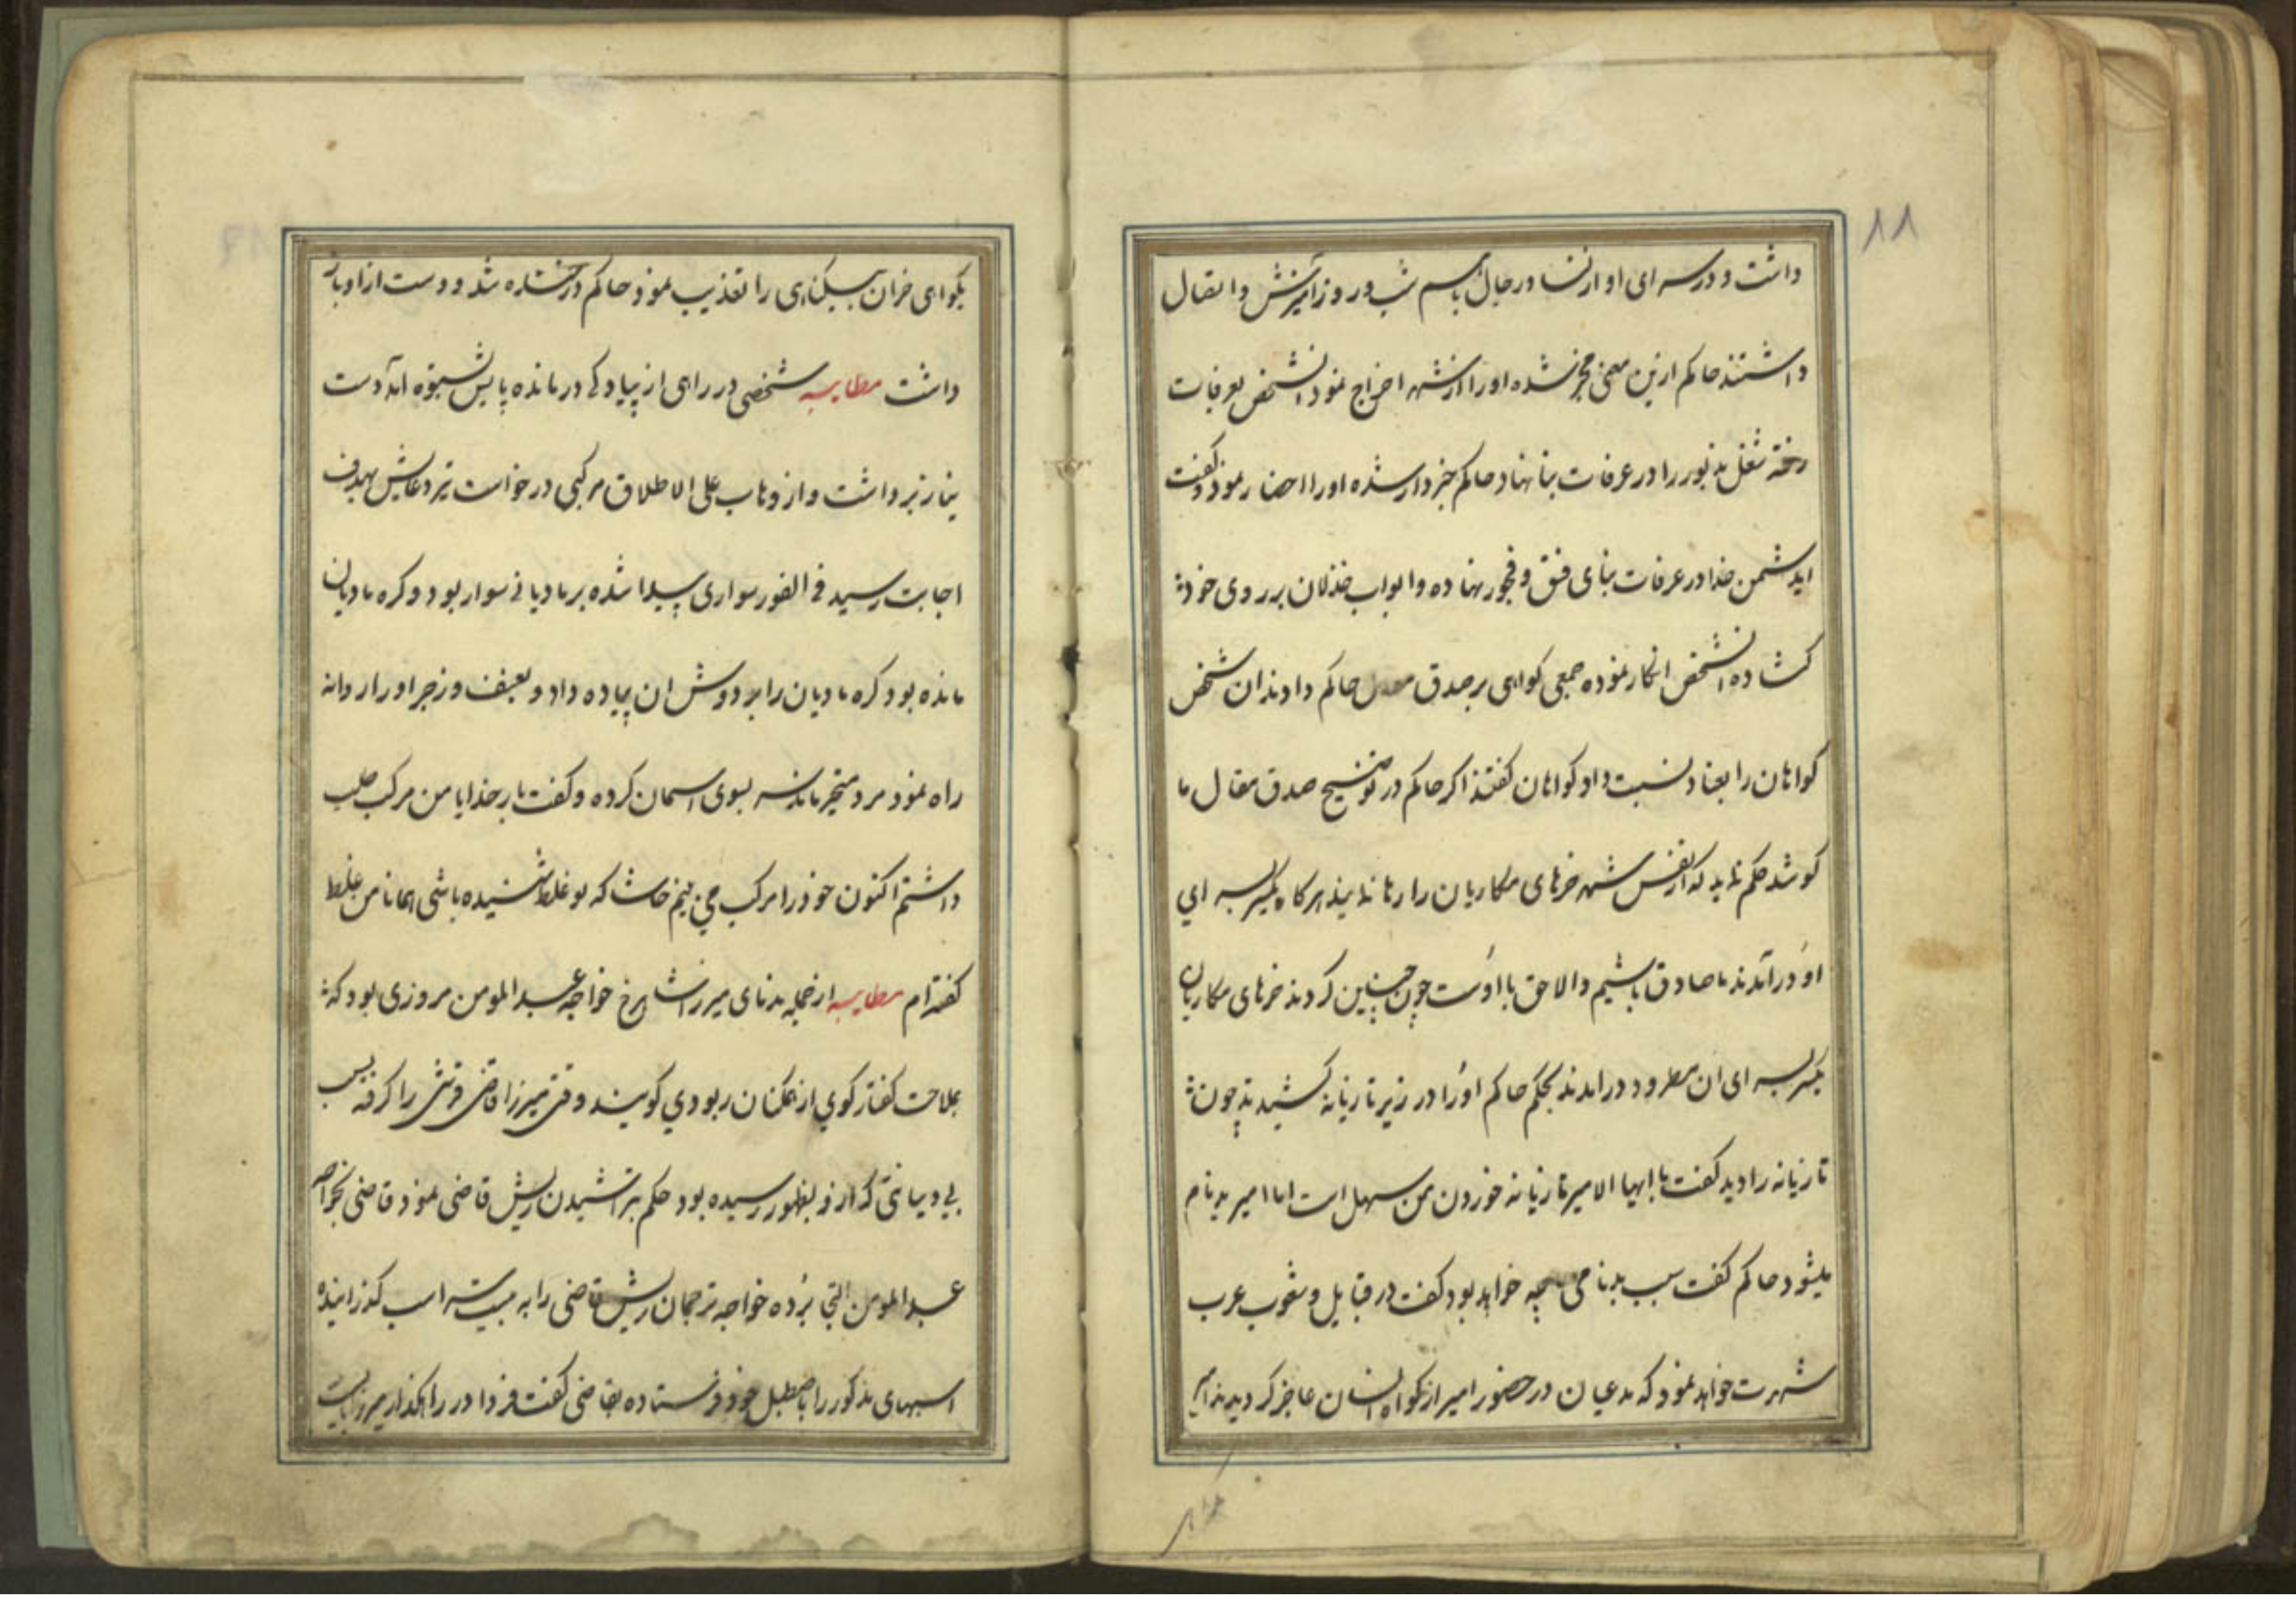 ۱۱
داشت و در سرای او از نسا و رجال باسم شب و روز آمیزش و اتصال
داشتند حاکم ازین معنی مخبر شده او را از شهر اخراج نمود انشخص بعرفات
رفته شغل مذبور را در عرفات بنا نهاد حاکم خبردار شده او را احضار نمود و گفت
ایدشمن خدا در عرفات بنای فسق و فجور نهاده و ابواب خذلان بر روی خود
کشاده انشخص انکار نموده جمعی کواهی بر صدق حاکم دادند ان شخص
کواهان را بعناد نسبت داد کواهان کفتند اکر حاکم در توضیح صدق مقال ما
کوشد حکم نماید که از نفس شهر خرهای مکاریان را رها نمایند هرکاه یکسر بسرای
او درآمدند ما صادق باشیم والا حق با اوست چون چنین کردند خرهای مکاریان
یکسر بسرای ان مطرود درامدند بحکم حاکم او را در زیر تازیانه کشیدند چون
تازیانه را دید کفت یا ایها الامیر تازیانه خوردن بمن سهل است اما امیر بدنام
میشود حاکم کفت سبب بدنامی چه خواهد بود کفت در قبایل و شعوب عرب
شهرت خواهد نمود که مدعیان در حضور امیر از کواه انسان عاجز کردیدند امیر
بکواهی خران بیکناهی را تعذیب نمود حاکم در خنده شد و دست از او باز
داشت مطایبه شخصی در راهی از پیادکی درمانده پایش بستوه امد دست
نیاز برداشت و از وهاب علی الاطلاق مرکبی درخواست تیر دعایش بهدف
اجابت رسید فی الفور سواری پیدا شده بر مادیانی سوار بود و کره مادیان
مانده بود کره مادیان را بر دوش ان پیاده داد و بعنف و زجر او را روانه
راه نمود مرد متحیر مانده سر بسوی اسمان کرده و کفت بار خدایا من مرکب طلب
داشتم اکنون خود را مرکب می بینم حاشا که تو غلط شنیده باشی همانا من غلط
کفته ام مطایبه از جمله ندمای میرزا شاهرخ خواجه عبدالمومن مروزی بود که
بملاحت کفتار کوی از همکنان ربودی کویند وقتی میرزا قاضی را کرفته بسبب
بی دیانتی که از و بظهور رسیده بود حکم بتراشیدن ریش قاضی نمود قاضی بخواجه
عبدالمومن التجا برده خواجه ترجمان ریش قاضی را به بیست سر اسب کذرانیده
اسبهای مذکور را باصطبل خود فرستاده بقاضی کفت فردا در راهکذار میرزا بایست